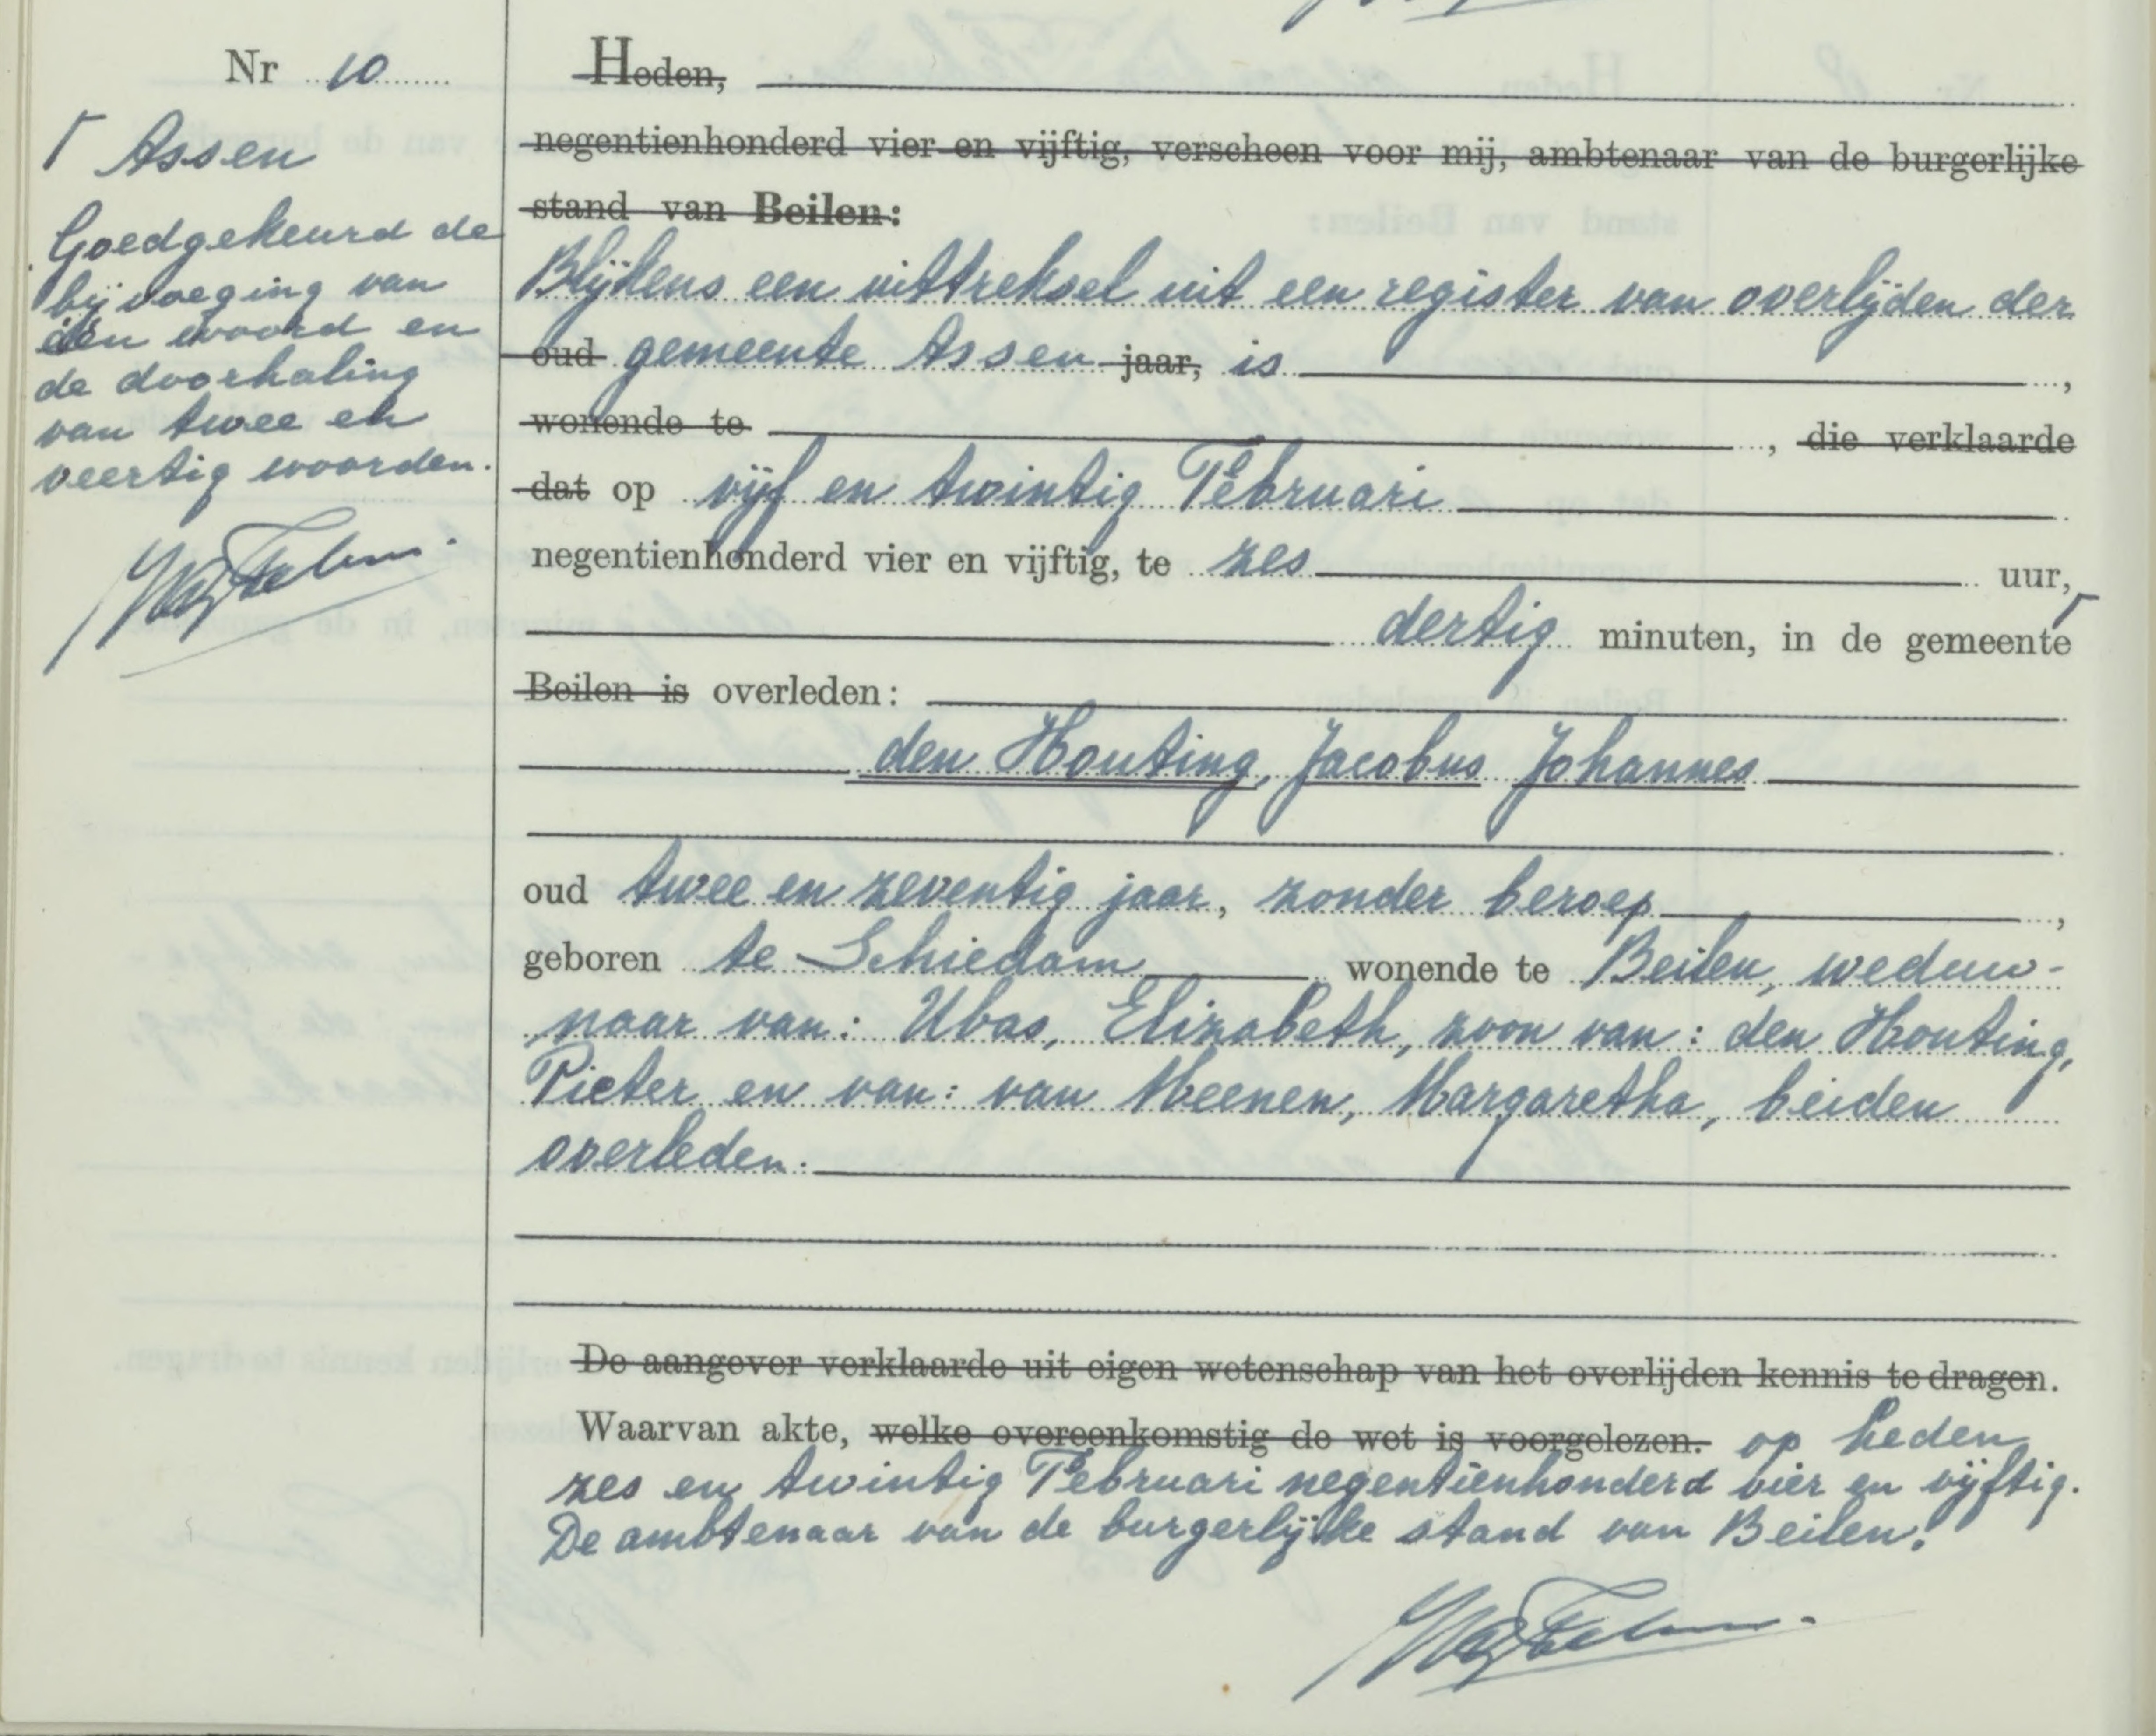 Nr 10
Γ Assen
Goedgekeurd de
bijvoeging van
één woord en
de doorhaling
van twee en
veertig woorden.
Heden,
negentienhonderd vier en vijftig, verscheen voor mij, ambtenaar van de burgerlijke
stand van Beilen:
Blijkens een uittreksel uit een register van overlijden der
oud gemeente Assen jaar, is ,
wonende te , die verklaarde
dat op vijf en twintig Februari
negentienhonderd vier en vijftig, te zes uur,
dertig minuten, in de gemeente Γ
Beilen is overleden:
den Houting, Jacobus Johannes
oud twee en zeventig jaar, zonder beroep ,
geboren te Schiedam wonende te Beilen, weduw-
naar van: Ubas, Elizabeth, zoon van: den Houting,
Pieter en van: van Meenen, Margaretha, beiden
overleden.
De aangever verklaarde uit eigen wetenschap van het overlijden kennis te dragen.
Waarvan akte, welke overeenkomstig de wet is voorgelezen. op heden
zes en twintig Februari negentienhonderd vier en vijftig.
De ambtenaar van de burgerlijke stand van Beilen,